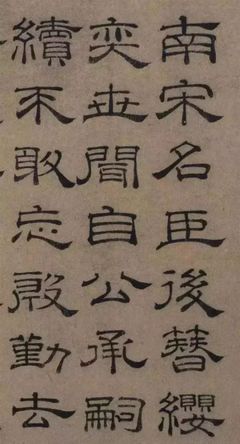 南宋名臣後簪纓
奕世聞自公承嗣
續不敢忘殷勤去